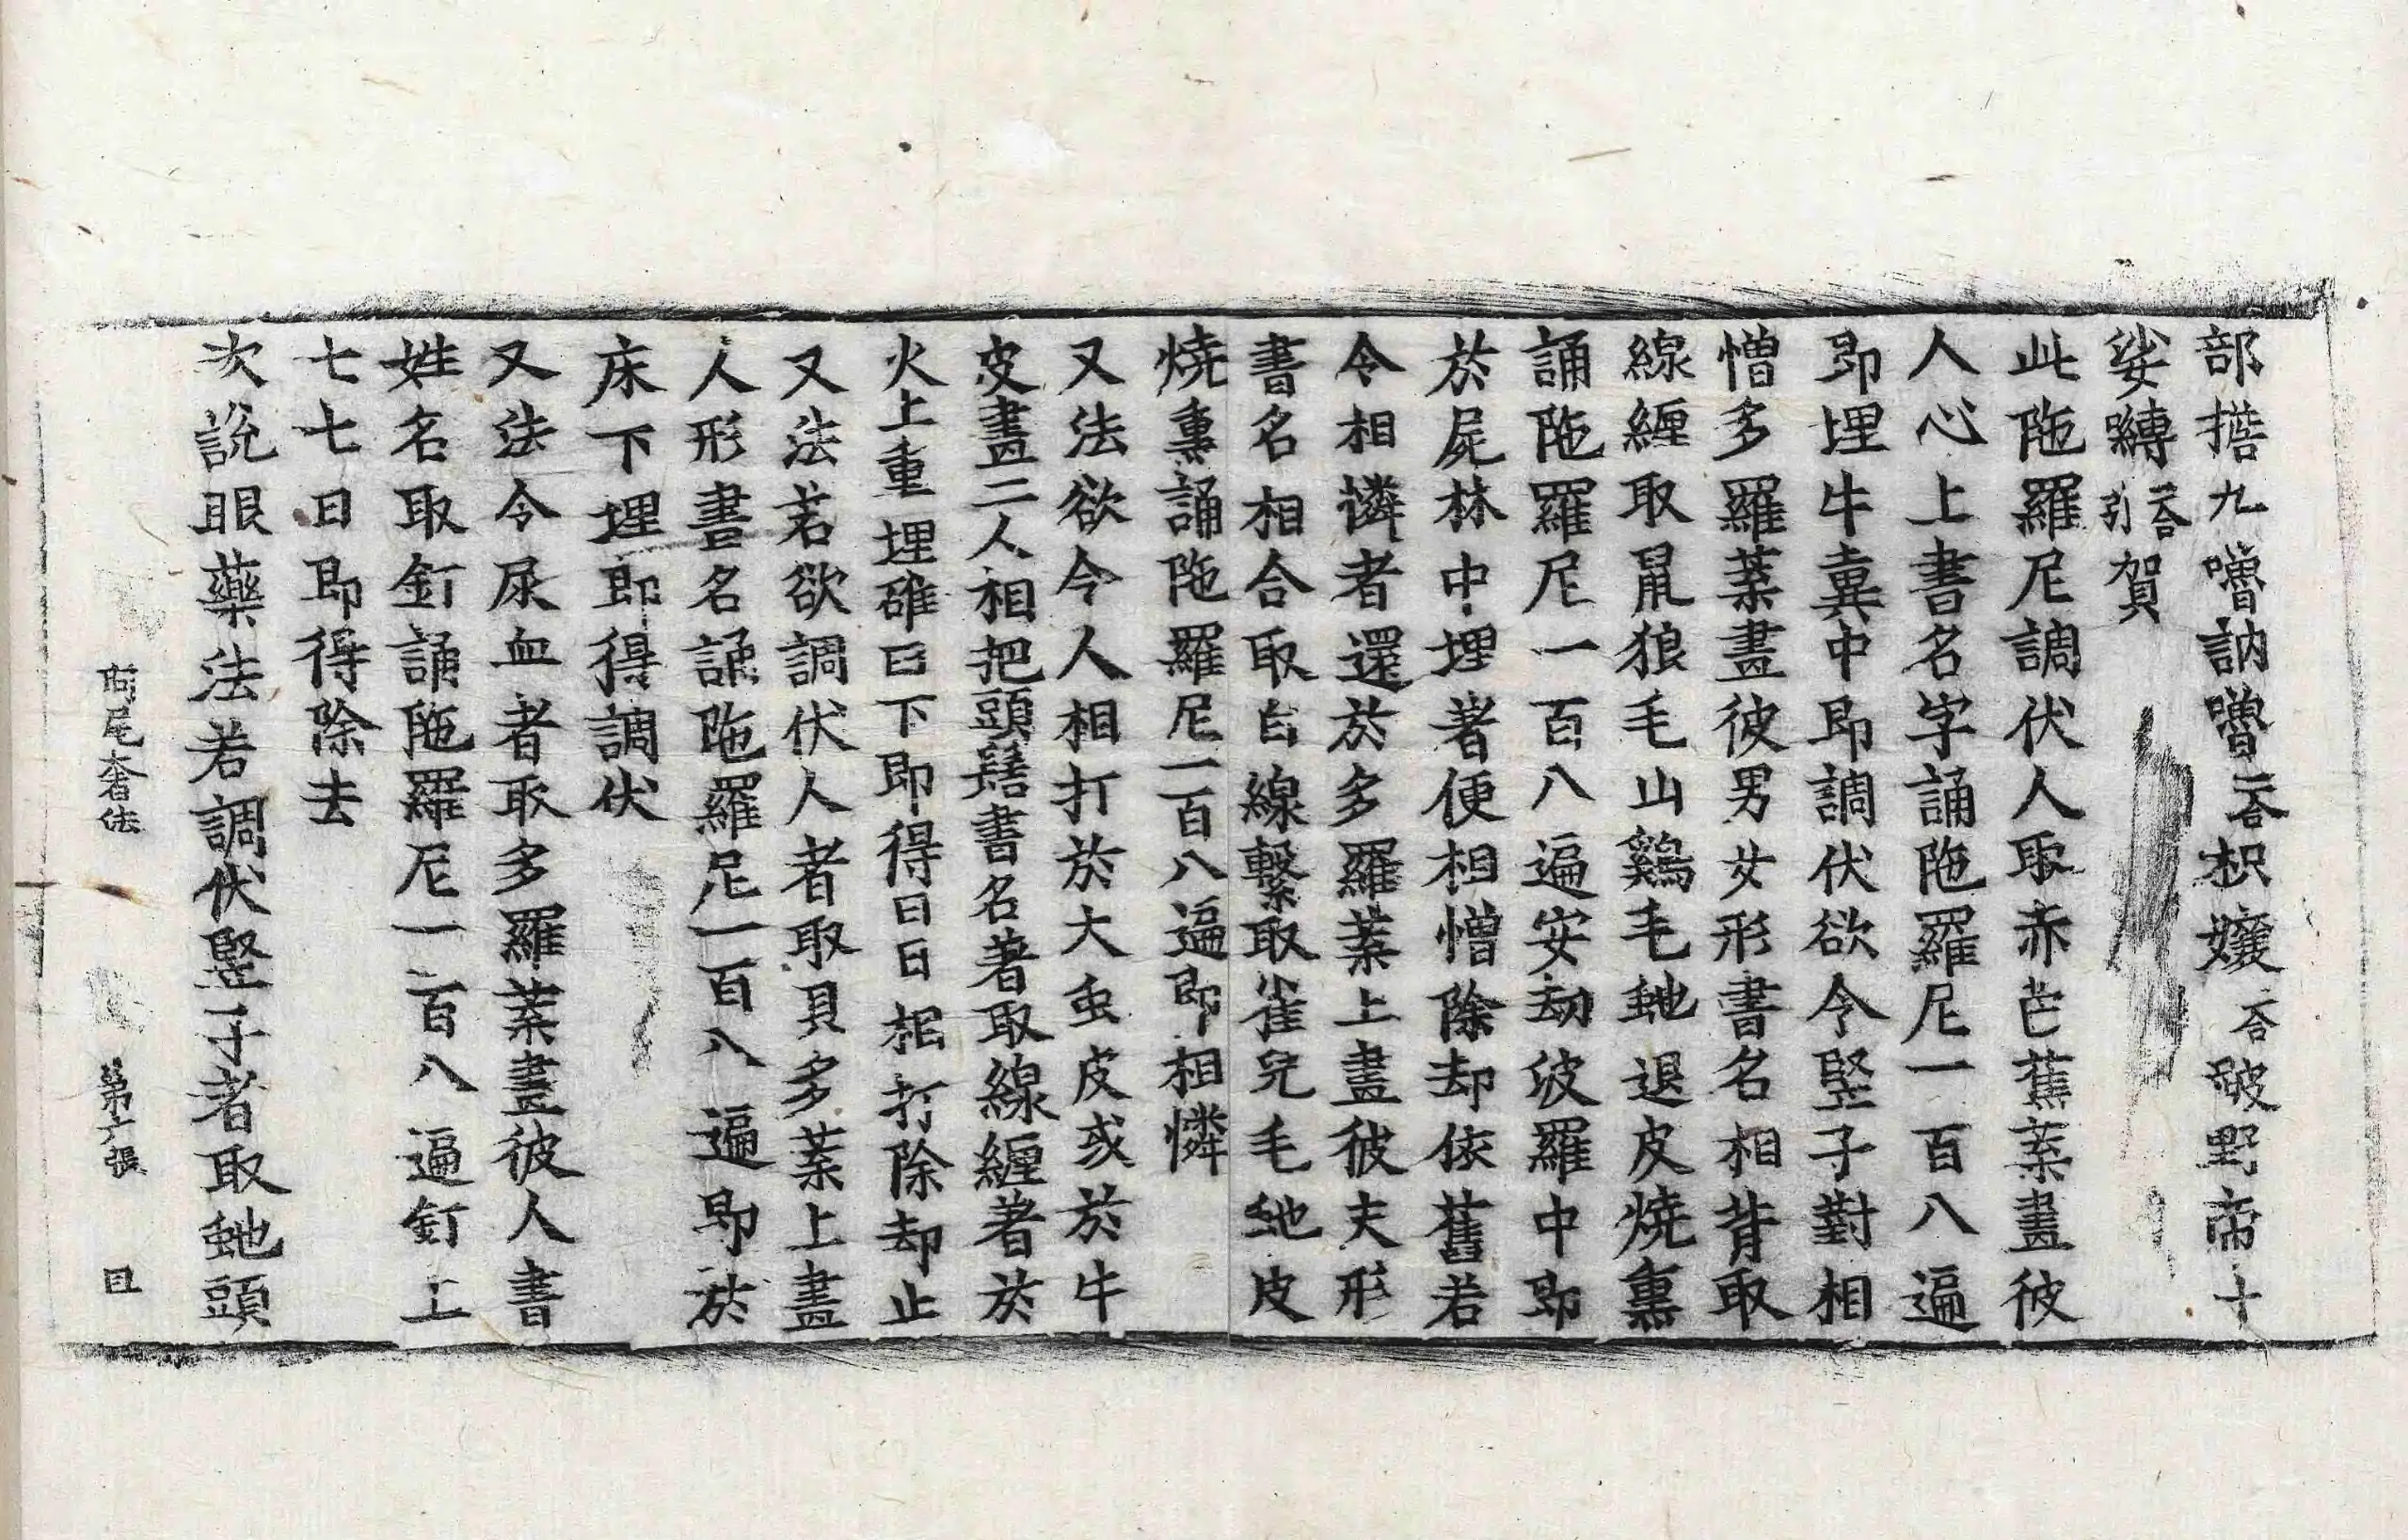 部擔九嚕訥嚕二合枳孃二合皤野帝十
娑嚩二合引賀
此陁羅尼調伏人取赤芒蕉葉畫彼
人心上書名字誦陁羅尼一百八遍
即埋牛糞中即調伏欲令竪子對相
憎多羅葉畫彼男女形書名相背取
線纏取鼠狼毛山鷄毛虵退皮燒熏
誦陁羅尼一百八遍安劫波羅中即
於屍林中埋著便相憎除却依舊若
令相憐者還於多羅葉上畫彼夫形
書名相合取白線繫取雀兒毛虵皮
燒熏誦陁羅尼一百八遍即相憐
又法欲令人相打於大虫皮或於牛
皮畫二人相把頭髻書名著取線纏著於
火上重埋碓臼下即得日日相打除却止
又法若欲調伏人者取貝多葉上畫
人形書名誦陁羅尼一百八遍即於
床下埋即得調伏
又法令尿血者取多羅葉畫彼人書
姓名取釘誦陁羅尼一百八遍釘上
七七日即得除去
次說眼藥法若調伏竪子者取虵頭
阿尾奢法 第六張